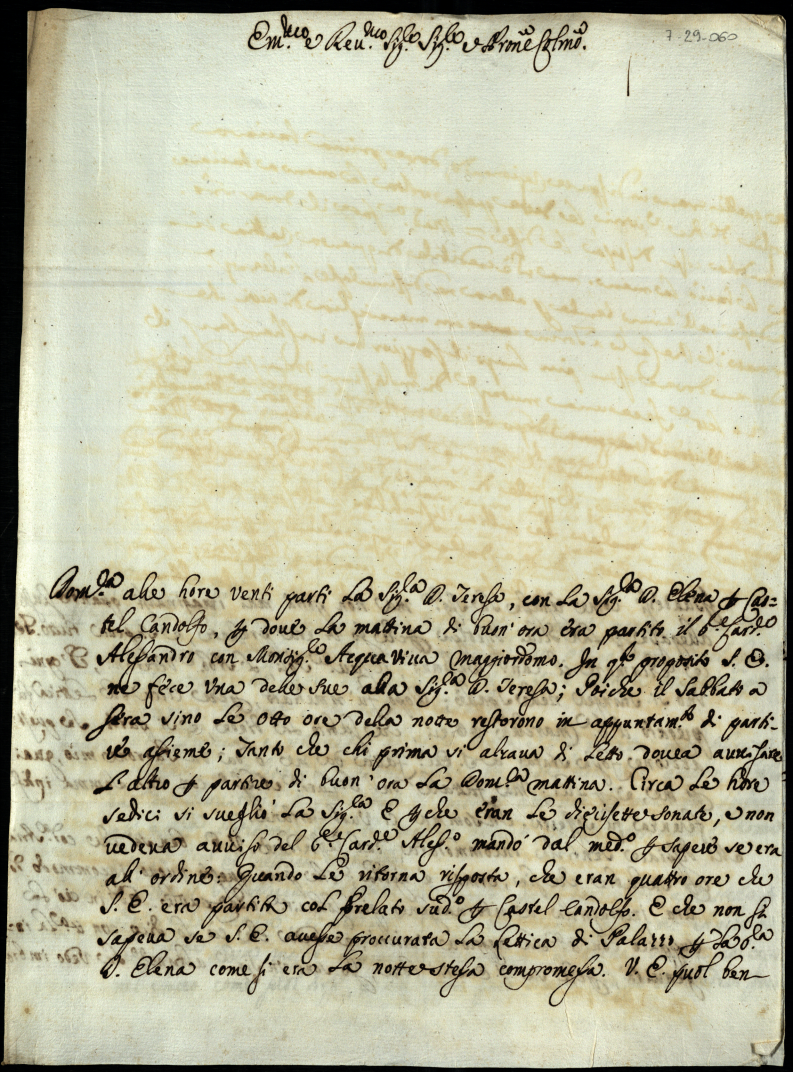 Em.mo e Rev.mo Sig.re Sig.re e Prone Colmo.
7-29-060
Dom.ca alle hore venti partì la Sig.ra D. Teresa, con la Sig.ra D. Elena p Cas=
tel Gandolfo, p dove la mattina di buon'ora era partito il S.r Card.le
Alessandro con Monsig.re Acquaviva Maggiordomo. In qto proposito S. E.
ne fece una delle sue alla Sig.ra D. Teresa; Poiche il Sabbato a
sera sino le otto ore della notte restorono in appuntam.to di parti-
re assieme; Tanto che chi prima si alzava di Letto dovea avvisare
l'altro p partire di buon'ora la Dom.ca mattina. Circa le hore
sedici si svegliò la Sig.ra E p che eran le dicisette sonate, e non
vedeva avviso del S.r Card.le Aless.o mandò dal med.o p sapere se era
all'ordine: Quando le ritorna risposta, che eran quattro ore che
S. E. era partita col Prelato sud.o p Castel Gandolfo. E che non si
sapeva se S. E. avesse proccurata la Lettica di Palazzo p la S.ra
D. Elena come si era la notte stessa compromessa. V. E. puol ben